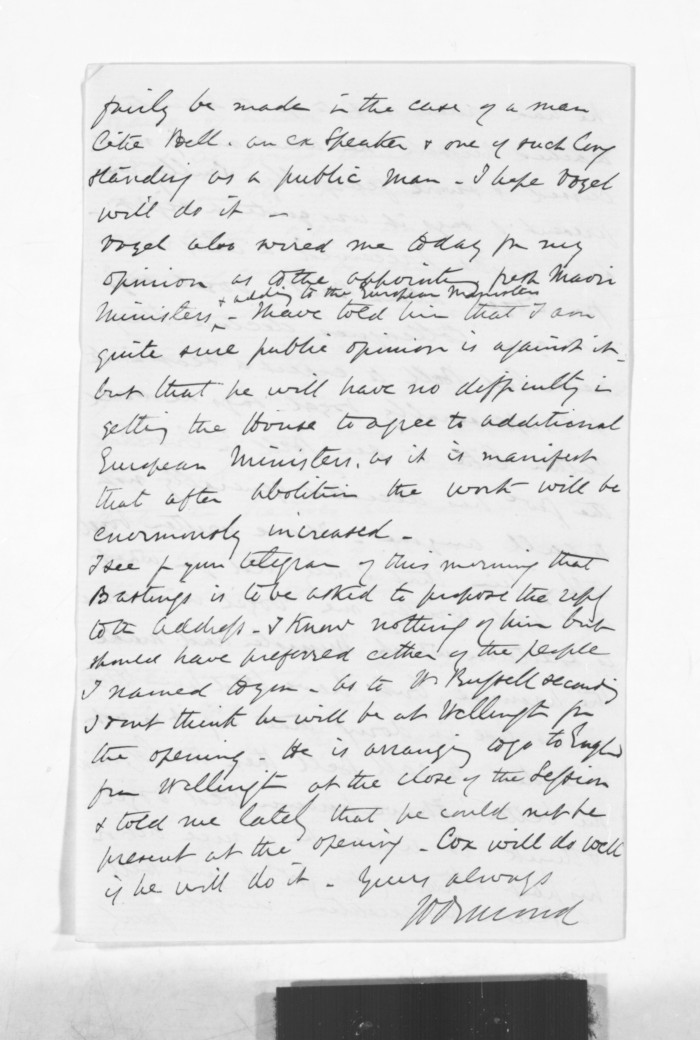 fairly be made in the case of a man
like Bell. an ex Speaker & one of such long
standing as a public man - I hope Vogel
will do it -
Vogel also wired me today for my
opinion as to the appointing fresh Maori
& adding to the European Ministers
Ministers - I have told him that I am
quite sure public opinion is against it -
but that he will have no difficulty in
getting the House to agree to additional
European Ministers. as it is manifest
that after abolition the work will be
enormously increased -
I see by your telegram of this morning that
Bastings is to be asked to propose the reply
to the address - I know nothing of him but
should have preferred either of the people
I named to you - as to W Russell seconding
I dont think he will be at Wellington for
the opening - He is arranging to go to England
from Wellington at the close of the Session
& told me lately that he could not be
present at the opening - Cox will do well
if he will do it - Yours always
JD Ormond